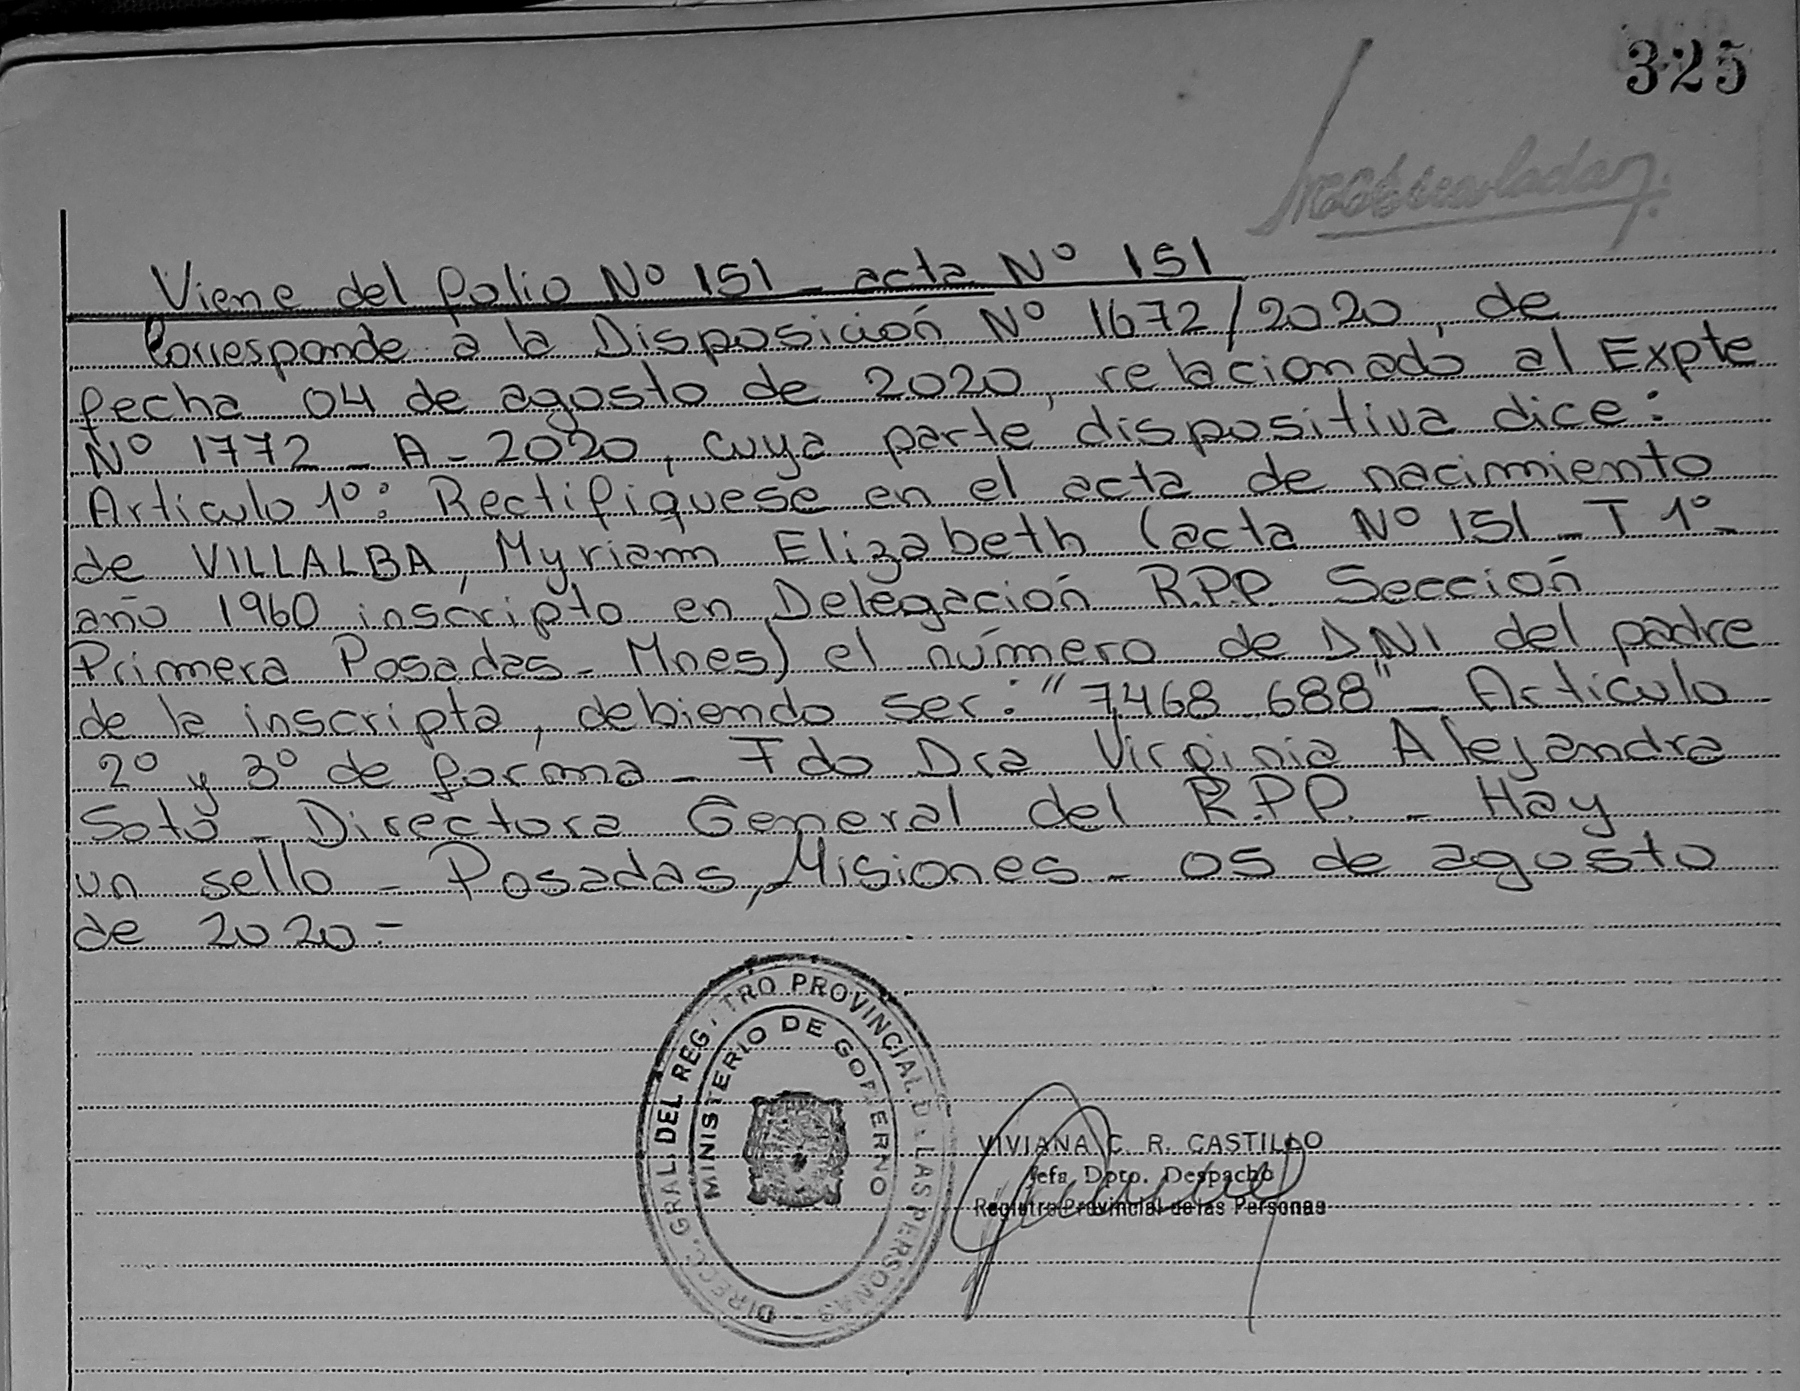 325
Viene del folio Nº 151 - acta Nº 151
Corresponde a la Disposición Nº 1672/2020, de
fecha 04 de agosto de 2020, relacionado al Expte
Nº 1772 - A - 2020, cuya parte dispositiva dice:
Artículo 1º: Rectifíquese en el acta de nacimiento
de VILLALBA, Myriam Elizabeth (acta Nº 151 - T 1º -
año 1960 inscripto en Delegación R.P.P. Sección
Primera Posadas - Mnes) el número de DNI del padre
de la inscripta, debiendo ser: "7.468.688" - Artículo
2º y 3º de forma - Fdo Dra Virginia Alejandra
Soto - Directora General del R.P.P. - Hay
un sello - Posadas, Misiones - 05 de agosto
de 2020 -
DIRECC. GRAL. DEL REGISTRO PROVINCIAL DE LAS PERSONAS
MINISTERIO DE GOBIERNO
VIVIANA C. R. CASTILLO
Jefa Dpto. Despacho
Registro Provincial de las Personas